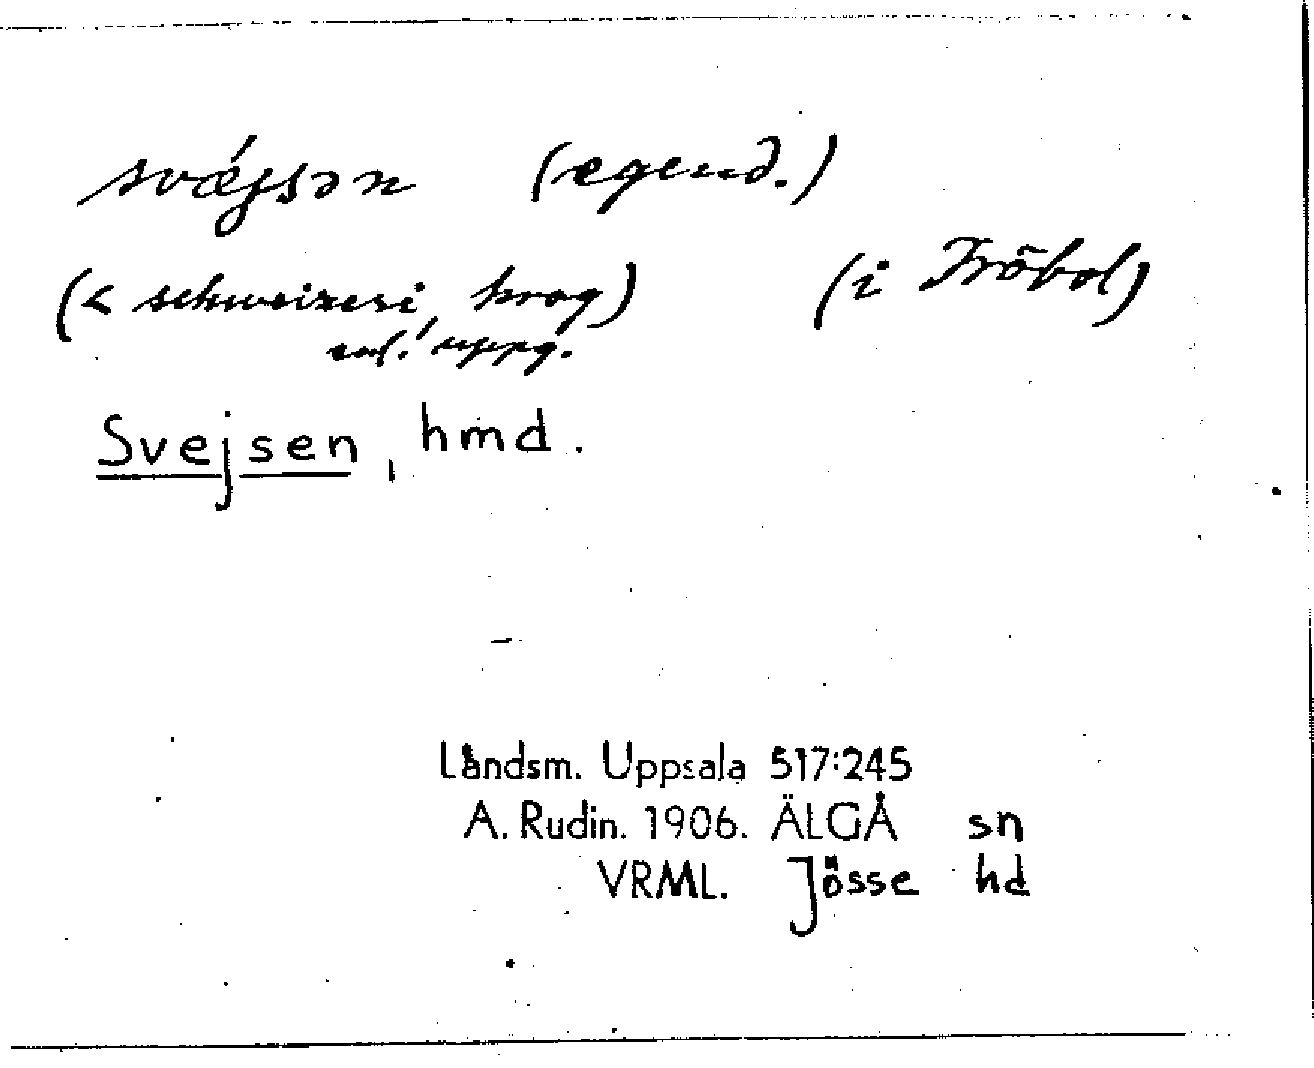 svǽjsən (egend.)
(< schweizeri, krog) (i Fröbol)
enl. uppg.
Svejsen, hmd.
Landsm. Uppsala 517:245
A. Rudin. 1906. ÄLGÅ sn
VRML. Jösse hd